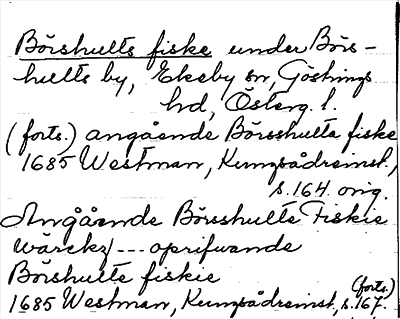 Börshults fiske under Börs-
hults by, Ekeby sn, Göstrings
hd, Österg. l.
(forts.) angående Börsshults fiske
1685 Westman, Kungsådreinst.,
s. 164. orig.
Angående Börsshults Fiskie
wärck/ --- oprifwande
Börshults fiskie (forts.)
1685 Westman, Kungsådreinst., s. 167.